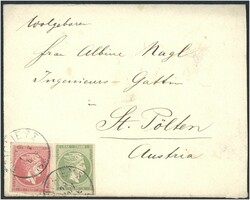 Wolgeboren
Frau Albine Nagl
Ingenieurs-Gattin
in
St. Pölten
Austria